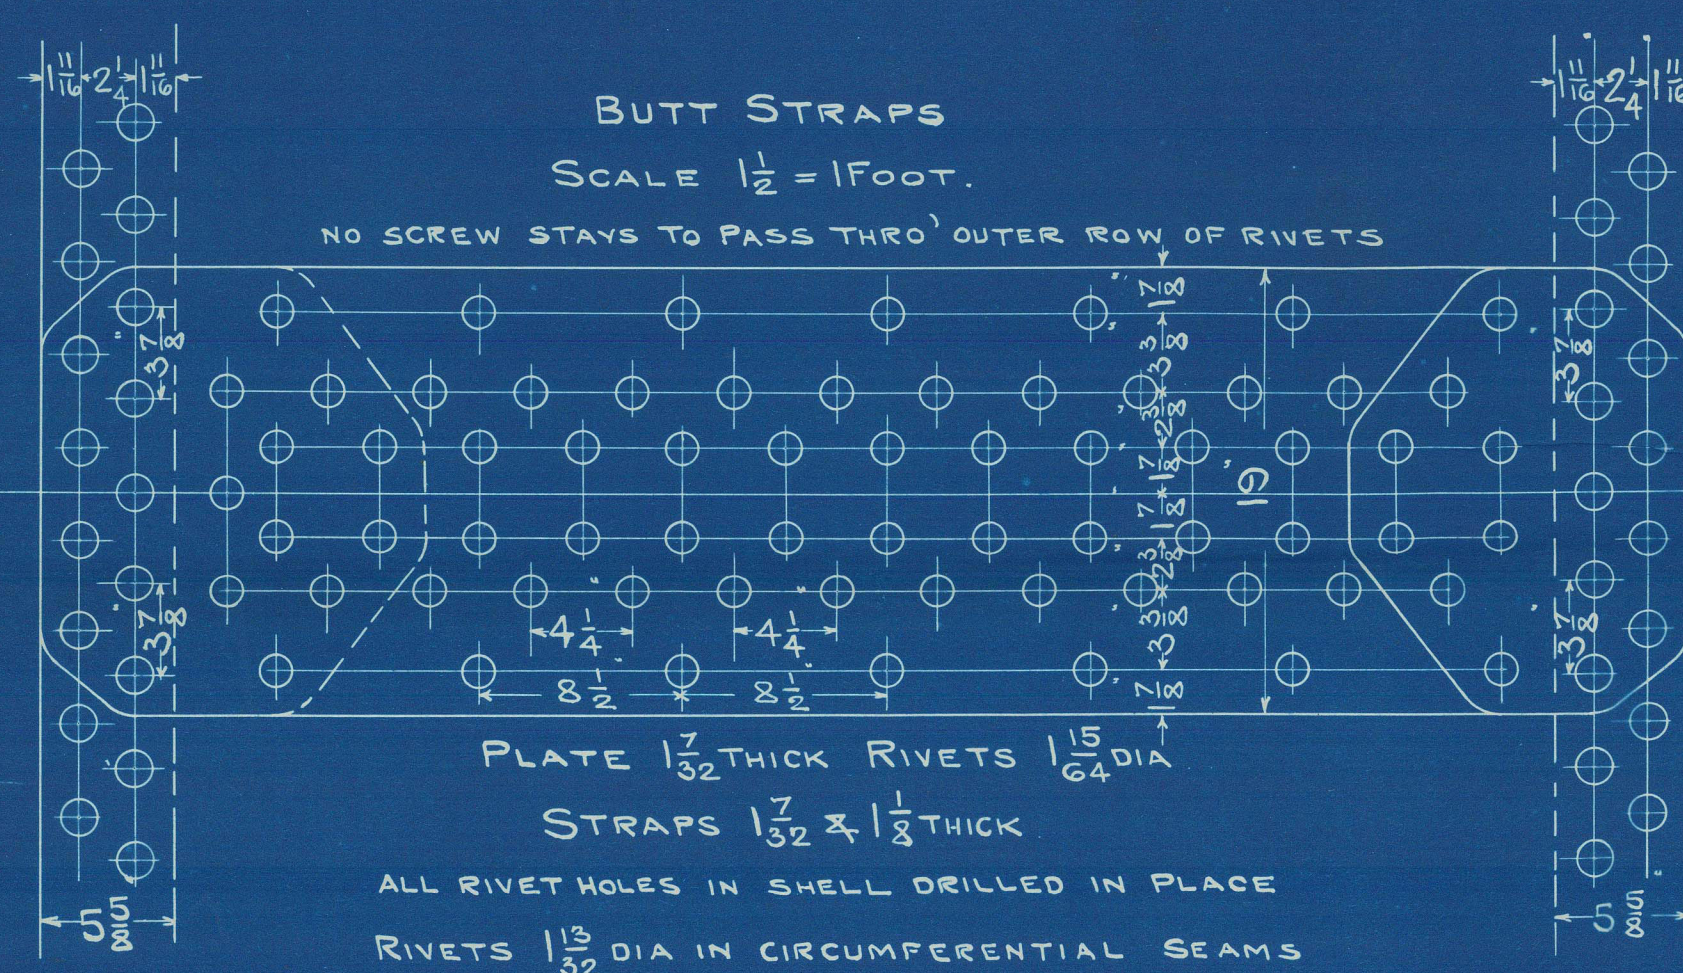 1 11/16 2 1/4 1 11/16
1 11/16 2 1/4 1 11/16
BUTT STRAPS
SCALE 1 1/2 = 1 FOOT.
NO SCREW STAYS TO PASS THRO' OUTER ROW OF RIVETS
3 7/8"
3 7/8"
1 7/8"
3 3/8"
2 3/8"
1 7/8"
1 7/8"
2 3/8"
3 3/8"
1 7/8"
19"
3 7/8"
3 7/8"
4 1/4" 4 1/4"
8 1/2" 8 1/2"
PLATE 1 7/32 THICK RIVETS 1 15/64 DIA
STRAPS 1 7/32 & 1 1/8 THICK
ALL RIVET HOLES IN SHELL DRILLED IN PLACE
5 5/8 5 5/8"
RIVETS 1 13/32 DIA IN CIRCUMFERENTIAL SEAMS